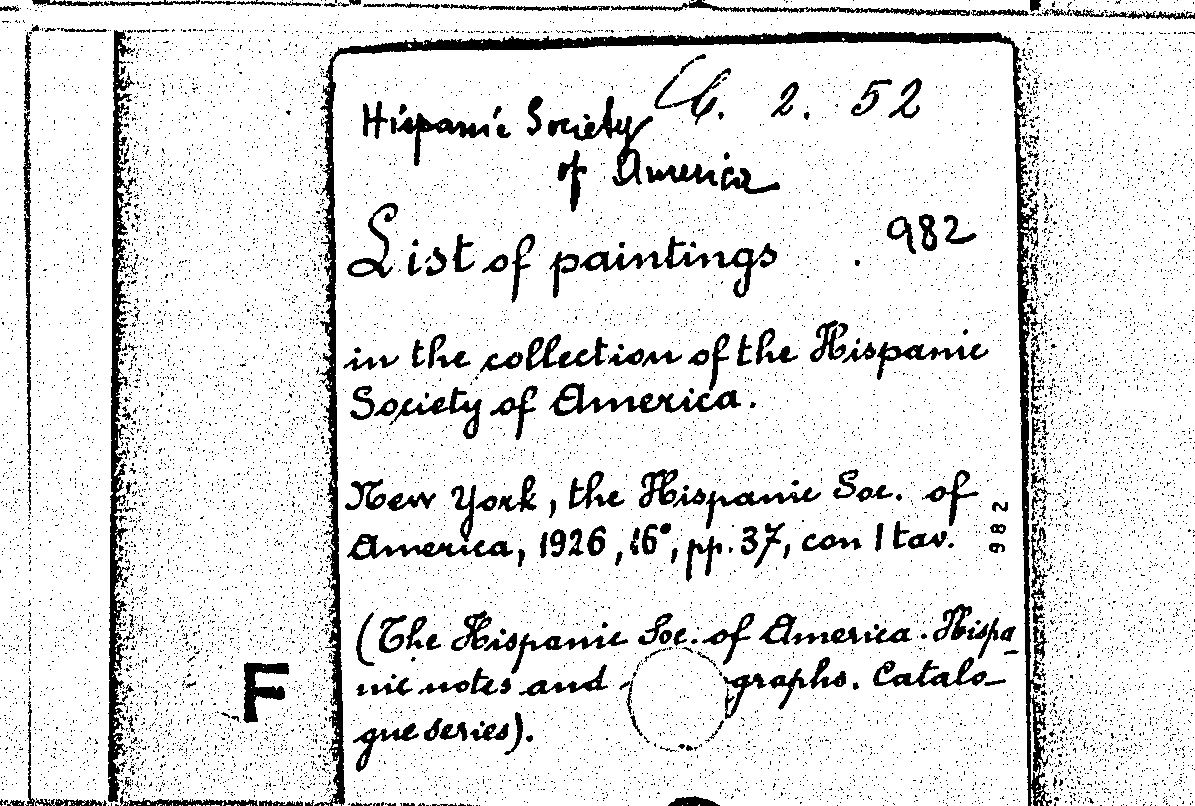 Hispanic Society
of America
6. 2. 52
982
List of paintings
in the collection of the Hispanic
Society of America.
New York, the Hispanic Soc. of
America, 1926, 16°, pp. 37, con 1 tav.
982
(The Hispanic Soc. of America. Hispa
nic notes and graphs. Catalo-
gue series).
F